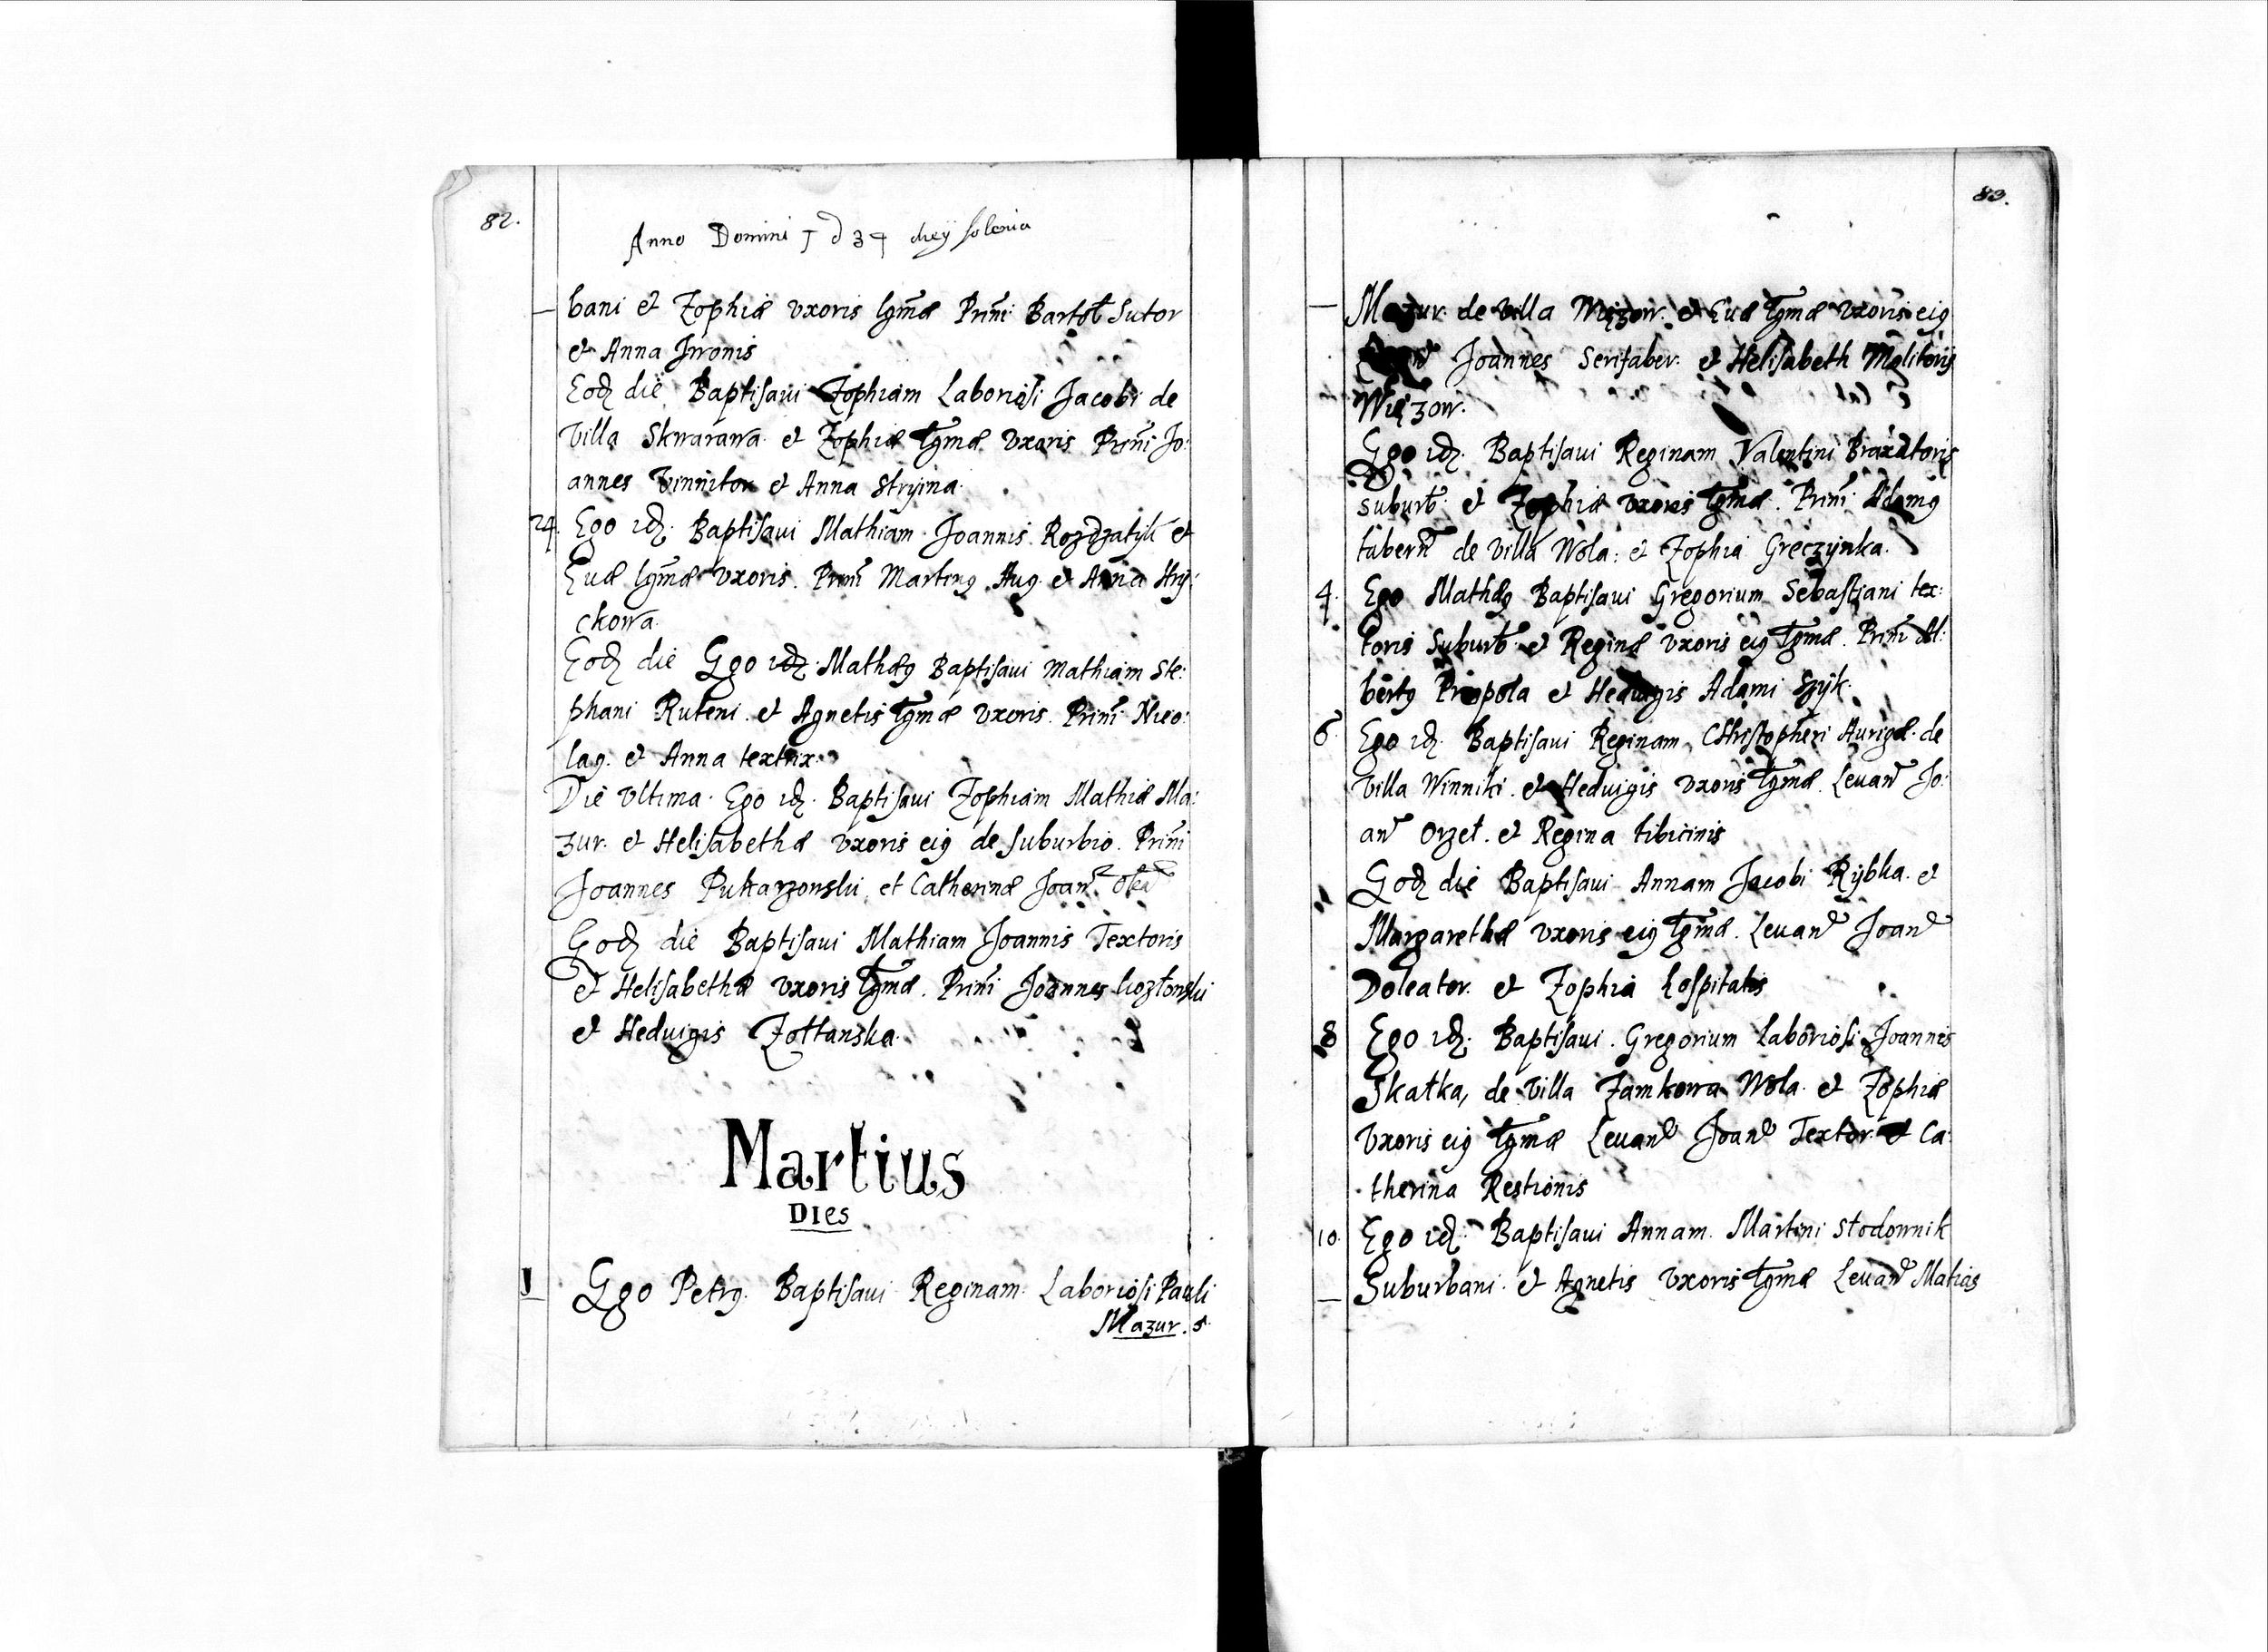 82.
Anno Domini
bani et Zophiæ vxoris lgmæ Prīni Bartoł Sutor
et Anna Jwonis
Eodʒ die Baptisaui Zophiam Laboriosi Jacobi de
Villa Skwarawa et Zophiæ lgmæ vxoris Prīni Jo:
annes Vinnitor et Anna Stryina
24. Ego idʒ Baptisaui Mathiam Joannis et
Euæ lgmæ vxoris. Prīni Martinꝰ Aug. et Anna Hry:
ckowa.
Eodʒ die Ego idʒ Mathæꝰ Baptisaui Mathiam Ste:
phani Ruteni et Agnetis lgmæ vxoris. Prīni Nico:
laꝰ. et Anna textrix.
Die Vltima. Ego idʒ. Baptisaui Zophiam Mathiæ Ma:
zur. et Helisabethæ vxoris eiꝰ de suburbio. Prīni
Joannes et Catherinæ Joan
Eodʒ die Baptisaui Mathiam Joannis Textoris
et Helisabethæ vxoris lgmæ. Prīni Joannes kozłonski
et Heduigis Zołtanska.
Martius
DIes
1 Ego Petrꝰ. Baptisaui Reginam Laboriosi Pauli
Mazur.
83.
Mazur. de Villa Mięzow. et Euæ lgmæ vxoris eiꝰ
Joannes Serifaber. et Helisabeth Molitoris
Więzow.
Ego idʒ. Baptisaui Reginam Valentini Braxatoris
suburb. et Zophiæ vxoris lgmæ. Prīni Adamꝰ
tabern de Villa Wola: et Zophia Greczynka.
4. Ego Mathæꝰ Baptisaui Gregorium Sebastiani tex:
toris Suburb. et Reginæ vxoris eiꝰ lgmæ. Prīni Al:
bertꝰ Propola et Heduigis Adami Szyk.
6. Ego idʒ. Baptisaui Reginam CHristopheri Aurigæ de
Villa Winniki. et Heduigis vxoris lgmæ. Leuan Jo:
an Orzeł. et Regina tibicinis
Eodʒ die Baptisaui Annam Jacobi Rybka. et
Margarethæ vxoris eiꝰ lgmæ. Leuan Joan
Doleator. et Zophia hospitalis
8 Ego idʒ. Baptisaui. Gregorium Laboriosi Joannis
Skałka, de Villa Zamkowa Wola et Zophiæ
Vxoris eiꝰ lgmæ Leuan Joan Textor et Ca:
therina Restionis
10. Ego idʒ. Baptisaui Annam. Martini Słodownik
Suburbani. et Agnetis vxoris lgmæ Leuan Matias